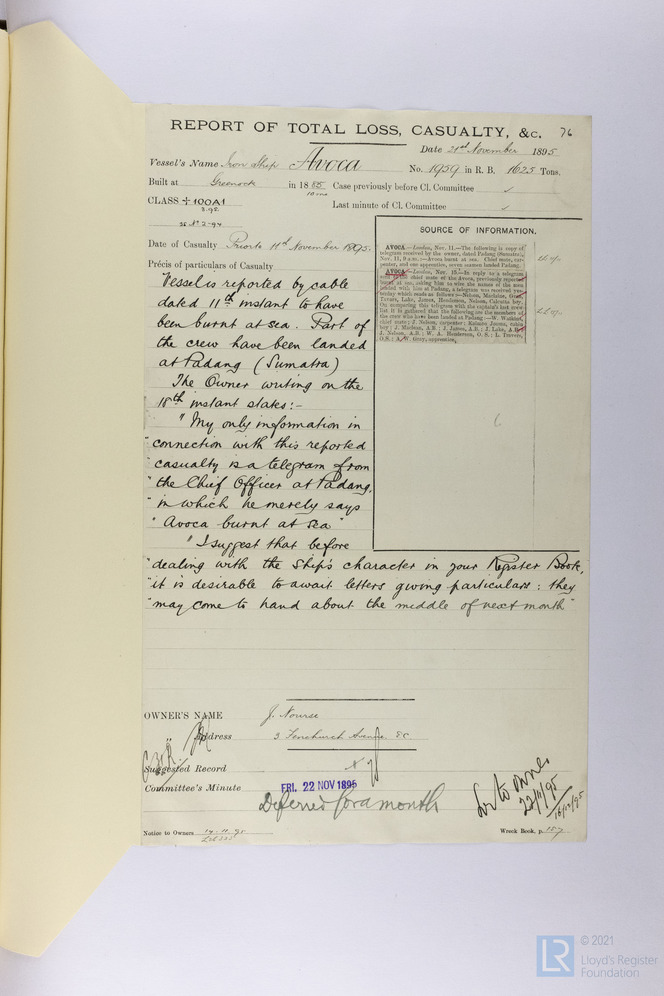 REPORT OF TOTAL LOSS, CASUALTY, &c. 76
Date 21st November 1895
Vessel's Name Iron Ship Avoca No. 1959 in R. B. 1625 Tons.
Built at Greenock in 1885 Case previously before Cl. Committee ✓
10 mo
CLASS ✠ 100A1 Last minute of Cl. Committee ✓
3.92
SOURCE OF INFORMATION.
Date of Casualty Prior to 11th November 1895.
Précis of particulars of Casualty
AVOCA.—London, Nov. 11.—The following is copy of
telegram received by the owner, dated Padang (Sumatra),
Nov. 11, 9 a.m. :—Avoca burnt at sea. Chief mate, car-
penter, and one apprentice, seven seamen landed Padang.
AVOCA.—London, Nov. 15.—In reply to a telegram
chief mate of the Avoca, previously reported
burnt at sea, asking him to wire the names of the men
landed with him at Padang, a telegram was received yes-
terday which reads as follows :—Nelson, Maclalor, Gray,
Travers, Lake, James, Henderson, Nelson, Calcutta boy.
On comparing this telegram with the captain's last crew
list it is gathered that the following are the members of
the crew who have been landed at Padang :—W. Watkins,
chief mate; J. Nelson, carpenter; Kalinno Jacoma, cabin
boy; J. Maclean, A.B.; J. James, A.B.; J. Lake, A.B.;
J. Nelson, A.B.; W. A. Henderson, O.S.; L. Travers,
O.S.; A. W. Grey, apprentice.
Vessel is reported by cable
dated 11th instant to have
been burnt at sea. Part of
the crew have been landed
at Padang (Sumatra)
The Owner writing on the
18th instant states:-
"My only information in
"connection with this reported
"casualty is a telegram from
"the Chief Officer at Padang,
"in which he merely says
"Avoca burnt at sea"
"I suggest that before
"dealing with the Ship's character in your Register Book,
"it is desirable to await letters giving particulars: they
"may come to hand about the middle of next month"
OWNER'S NAME J. Nourse
Address 3 Fenchurch Avenue. EC
Suggested Record
Committee's Minute FRI. 22 NOV 1895
Deferred for a month
Lr to owner
22/11/95
16/12/95
Notice to Owners 14.11.95
Wreck Book, p. 157
LR
© 2021
Lloyd's Register
Foundation